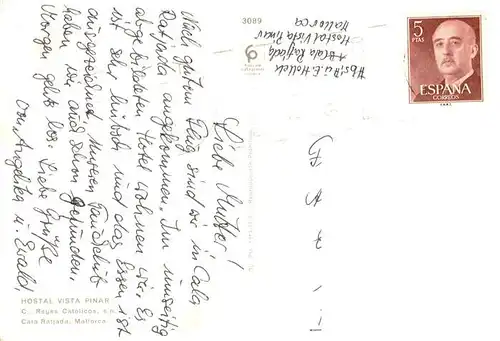 3089
Abs. H. u. E. Holleck
Cala Ratjada
Hostal Vista Pinar
Mallorca
5
PTAS
ESPAÑA
CORREOS
Liebe Mutter!
Nach gutem Flug sind wir in Cala
Ratjada angekommen. Im umseitig
abgebildeten Hotel wohnen wir. Es
ist sehr hübsch und das Essen ist
ausgezeichnet. Unseren Tauchclub
haben wir auch schon gefunden.
Morgen geht's los. Liebe Grüße
von Angelika u. Ewald.
HOSTAL VISTA PINAR
C. Reyes Católicos, s.n.
Cala Ratjada, Mallorca